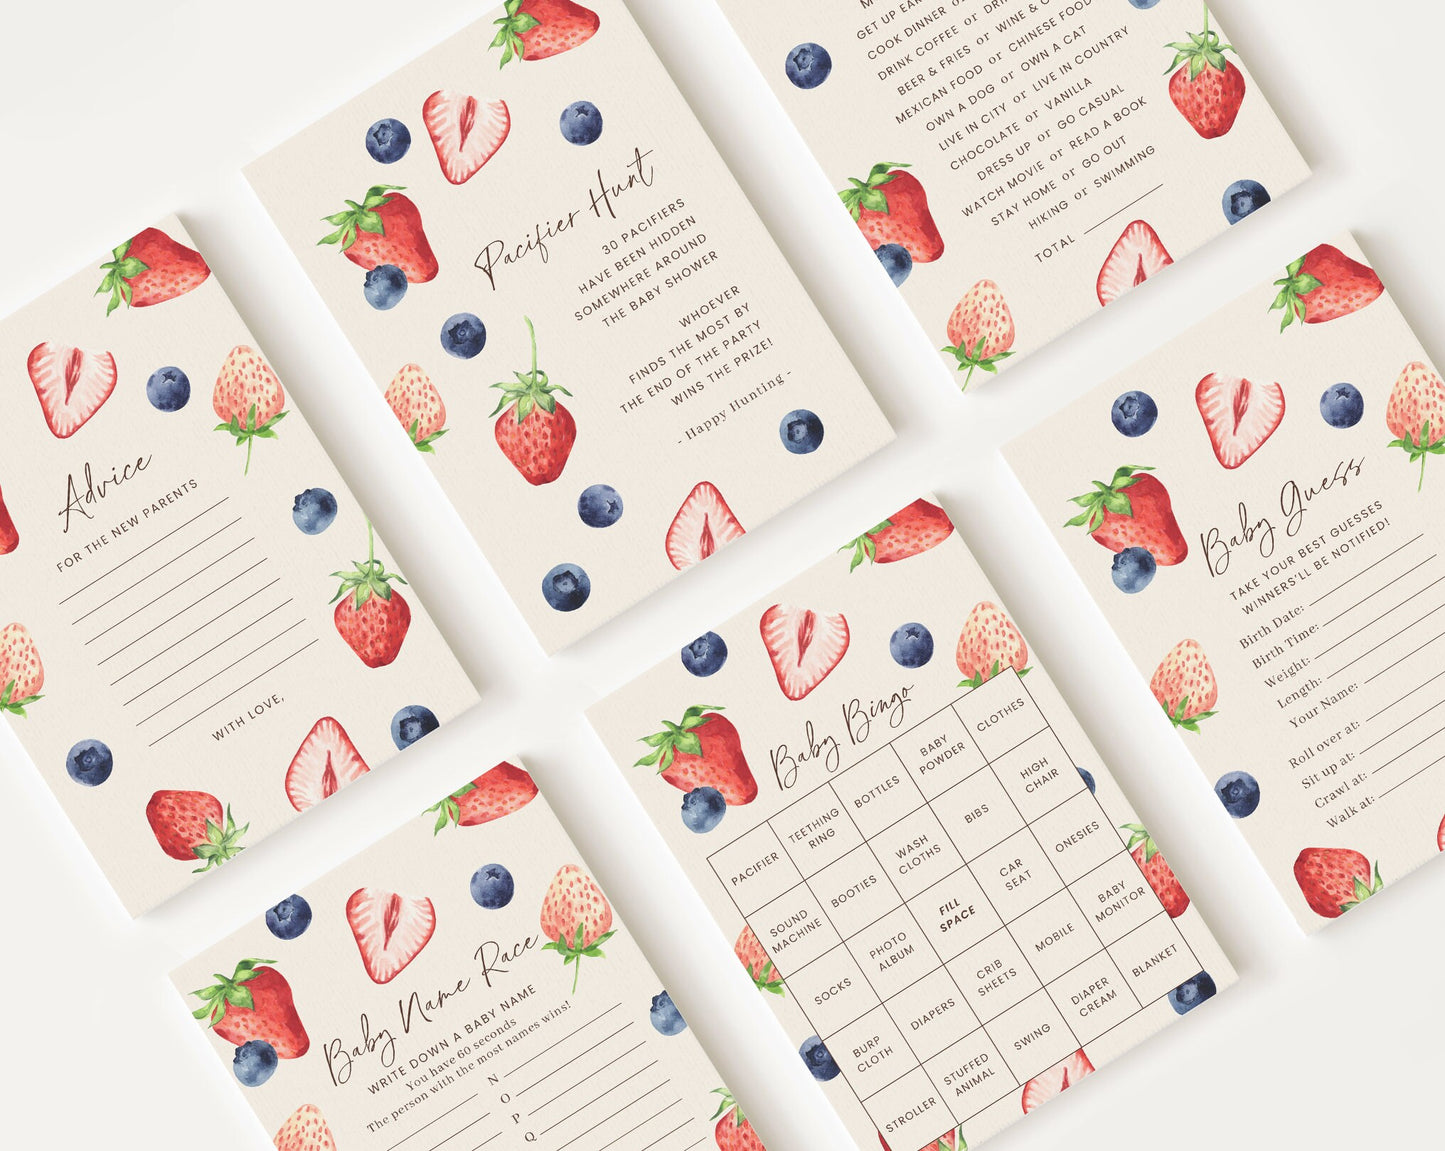 Pacifier Hunt
30 PACIFIERS
HAVE BEEN HIDDEN
SOMEWHERE AROUND
THE BABY SHOWER
WHOEVER
FINDS THE MOST BY
THE END OF THE PARTY
WINS THE PRIZE!
- Happy Hunting -
GET UP
COOK DINNER or
DRINK COFFEE or
BEER & FRIES or WINE &
MEXICAN FOOD or CHINESE FOOD
OWN A DOG or OWN A CAT
LIVE IN CITY or LIVE IN COUNTRY
CHOCOLATE or VANILLA
DRESS UP or GO CASUAL
WATCH MOVIE or READ A BOOK
STAY HOME or GO OUT
HIKING or SWIMMING
TOTAL
Advice
FOR THE NEW PARENTS
WITH LOVE,
Baby Guess
TAKE YOUR BEST GUESSES
WINNERS'LL BE NOTIFIED!
Birth Date:
Birth Time:
Weight:
Length:
Your Name:
Roll over at:
Sit up at:
Crawl at:
Walk at:
Baby Name Race
WRITE DOWN A BABY NAME
You have 60 seconds
The person with the most names wins!
N
O
P
Q
Baby Bingo
PACIFIER TEETHING RING BOTTLES BABY POWDER CLOTHES
SOUND MACHINE BOOTIES WASH CLOTHS BIBS HIGH CHAIR
SOCKS PHOTO ALBUM FILL SPACE CAR SEAT ONESIES
BURP CLOTH DIAPERS CRIB SHEETS MOBILE BABY MONITOR
STROLLER STUFFED ANIMAL SWING DIAPER CREAM BLANKET